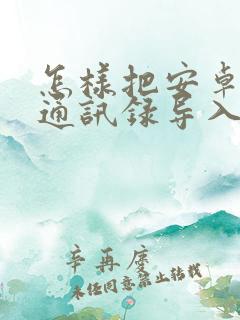 怎样把安卓
通訊録导入
辛再度
未经同意禁止转载